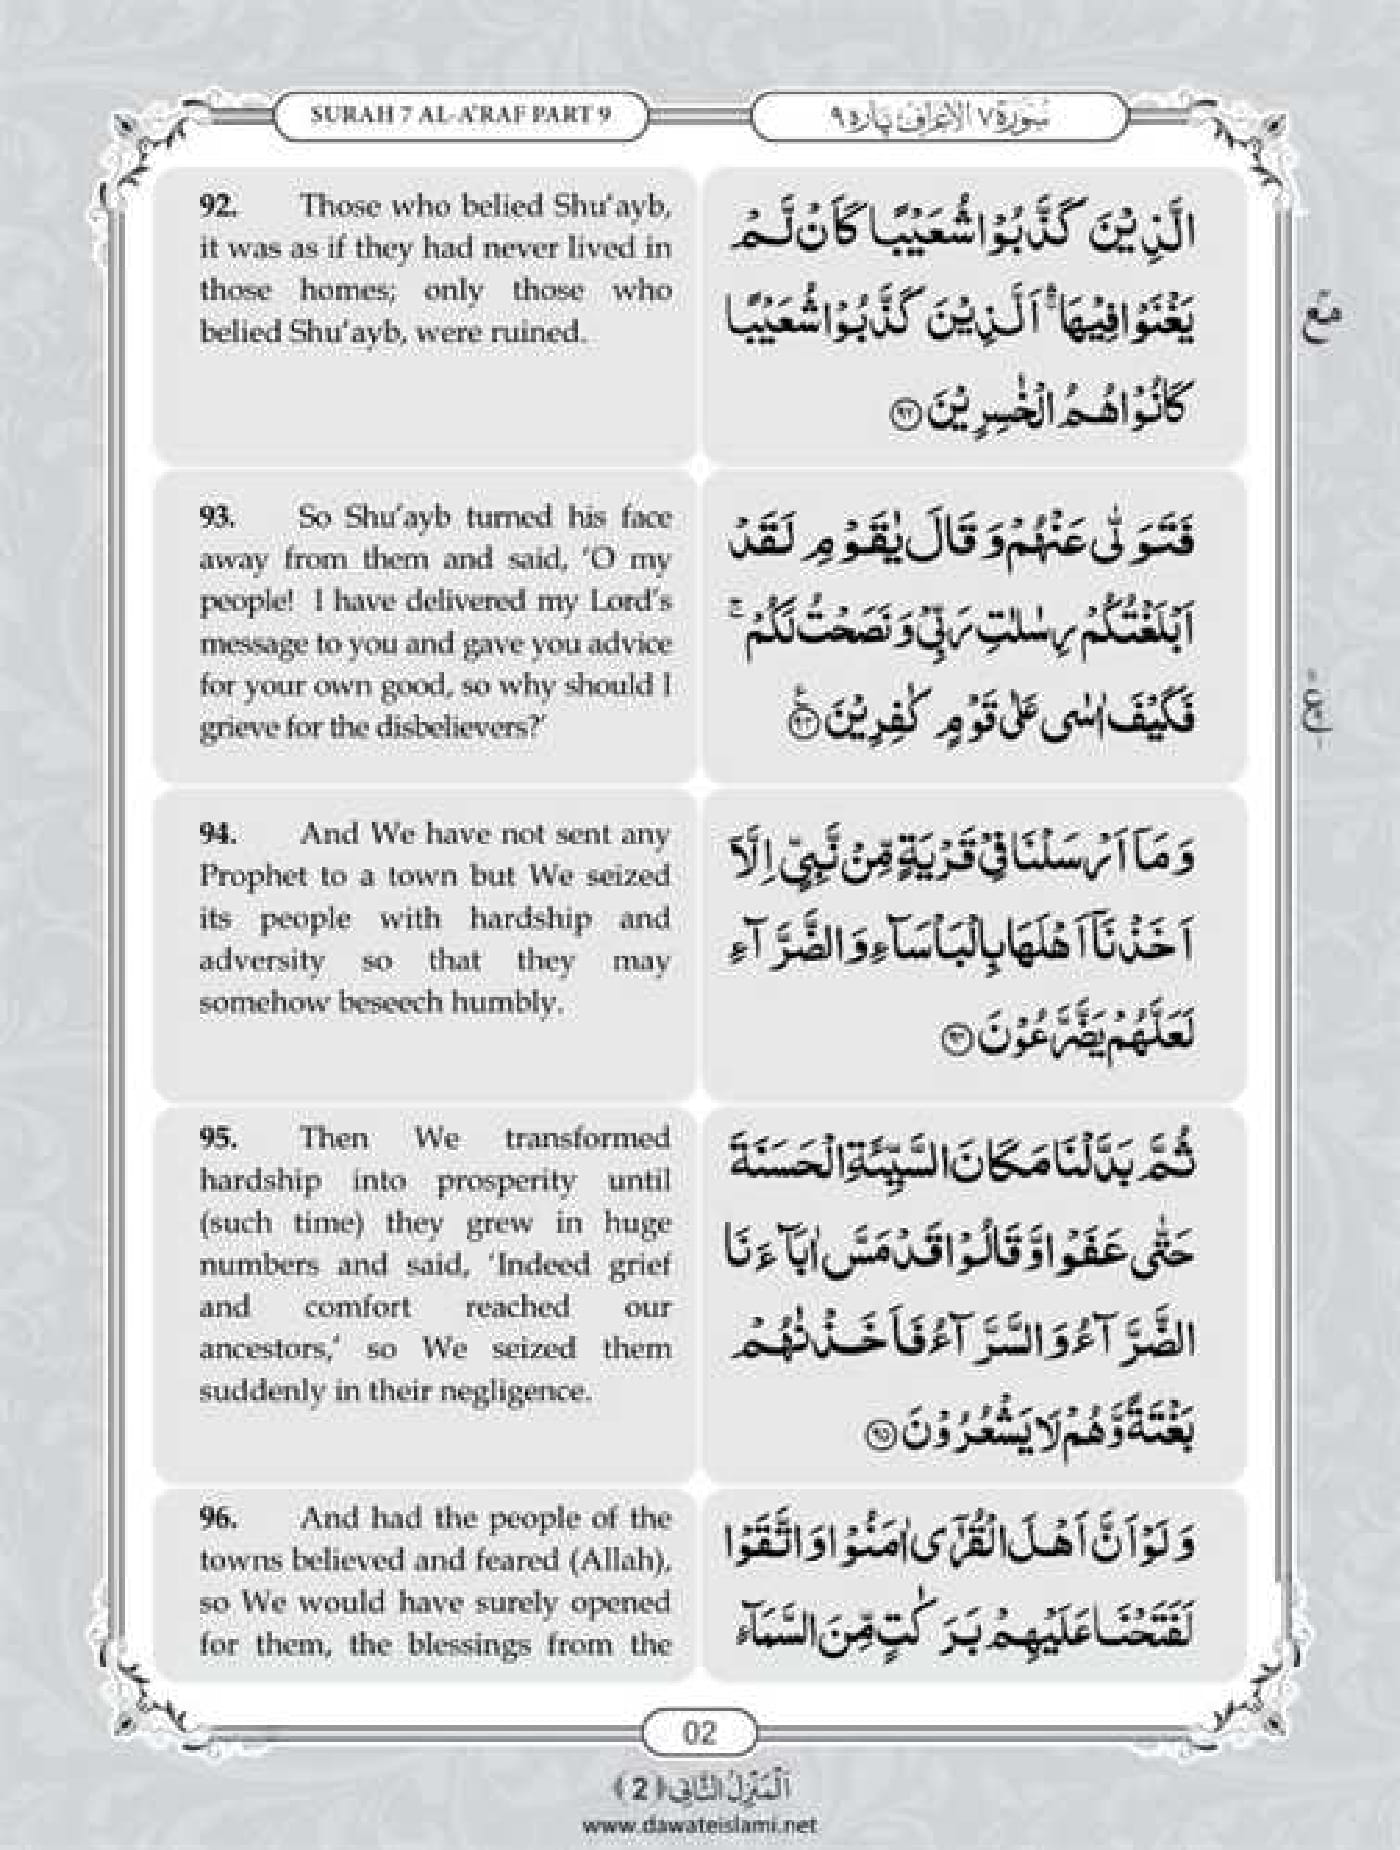 SURAH 7 AL-A'RAF PART 9
سُورَة ٧ الْاَعْرَاف پارہ ٩
92. Those who belied Shu'ayb,
it was as if they had never lived in
those homes; only those who
belied Shu'ayb, were ruined.
الَّذِيْنَ كَذَّبُوْا شُعَيْبًا كَاَنْ لَّمْ
يَغْنَوْا فِيْهَا ۛۚ اَلَّذِيْنَ كَذَّبُوْا شُعَيْبًا
كَانُوْا هُمُ الْخٰسِرِيْنَ ﴿۹۲﴾
93. So Shu'ayb turned his face
away from them and said, 'O my
people! I have delivered my Lord's
message to you and gave you advice
for your own good, so why should I
grieve for the disbelievers?'
فَتَوَلّٰى عَنْهُمْ وَ قَالَ يٰقَوْمِ لَقَدْ
اَبْلَغْتُكُمْ رِسٰلٰتِ رَبِّيْ وَ نَصَحْتُ لَكُمْ ۚ
فَكَيْفَ اٰسٰى عَلٰى قَوْمٍ كٰفِرِيْنَ ﴿۹۳﴾
94. And We have not sent any
Prophet to a town but We seized
its people with hardship and
adversity so that they may
somehow beseech humbly.
وَ مَاۤ اَرْسَلْنَا فِيْ قَرْيَةٍ مِّنْ نَّبِيٍّ اِلَّاۤ
اَخَذْنَاۤ اَهْلَهَا بِالْبَاْسَآءِ وَ الضَّرَّآءِ
لَعَلَّهُمْ يَضَّرَّعُوْنَ ﴿۹۴﴾
95. Then We transformed
hardship into prosperity until
(such time) they grew in huge
numbers and said, 'Indeed grief
and comfort reached our
ancestors,' so We seized them
suddenly in their negligence.
ثُمَّ بَدَّلْنَا مَكَانَ السَّيِّئَةِ الْحَسَنَةَ
حَتّٰى عَفَوْا وَّ قَالُوْا قَدْ مَسَّ اٰبَآءَنَا
الضَّرَّآءُ وَ السَّرَّآءُ فَاَخَذْنٰهُمْ
بَغْتَةً وَّ هُمْ لَا يَشْعُرُوْنَ ﴿۹۵﴾
96. And had the people of the
towns believed and feared (Allah),
so We would have surely opened
for them, the blessings from the
وَ لَوْ اَنَّ اَهْلَ الْقُرٰۤى اٰمَنُوْا وَ اتَّقَوْا
لَفَتَحْنَا عَلَيْهِمْ بَرَكٰتٍ مِّنَ السَّمَآءِ
02
اَلْمَنْزِلُ الثَّانِي ﴿2﴾
www.dawateislami.net